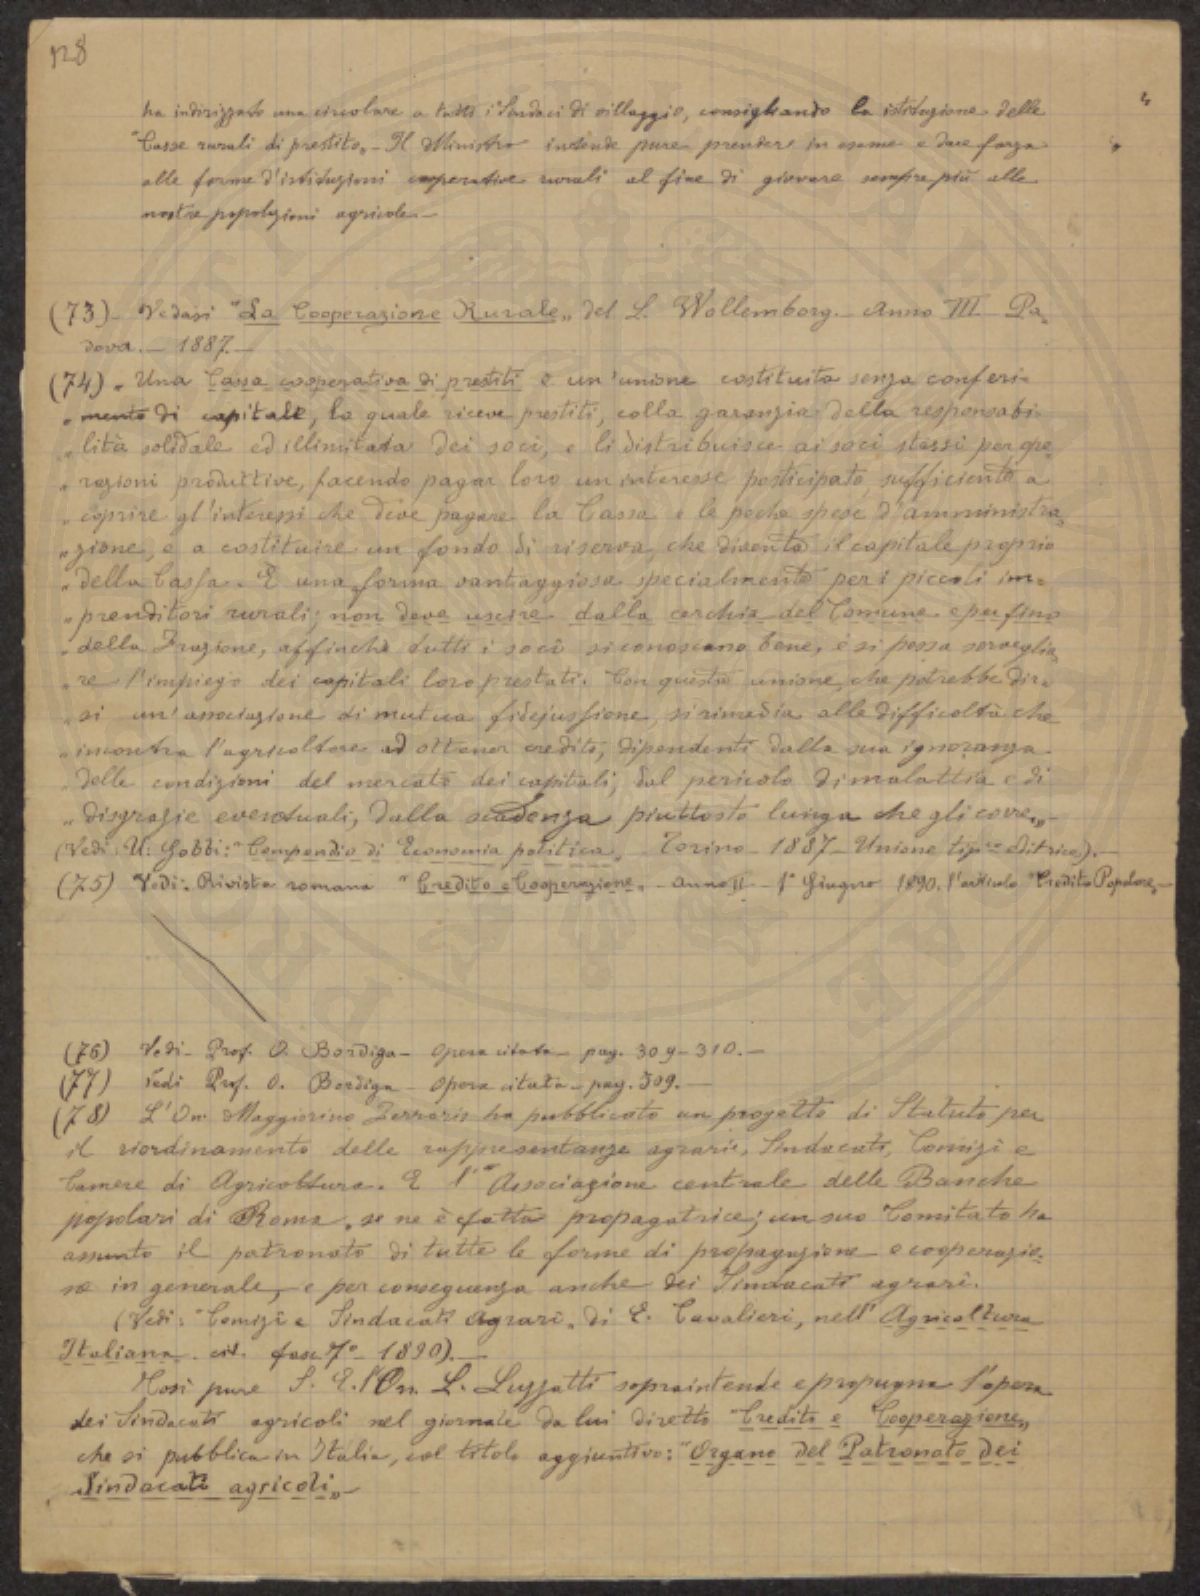 128
ha indirizzato una circolare a tutti i Sindaci di villaggio, consigliando la istituzione delle
"Casse rurali di prestito„ – Il Ministro intende pure prendere in esame e dare forza
alle forme d'istituzioni cooperative rurali al fine di giovare sempre più alle
nostre popolazioni agricole. –
(73) – Vedasi "La Cooperazione Rurale„ del L. Wollemborg. Anno III – Pa-
dova. – 1887. –
(74) „ Una Cassa cooperativa di prestiti è un'unione costituita senza conferi-
„ mento di capitale, la quale riceve prestiti, colla garanzia della responsabi-
„ lità solidale ed illimitata dei soci, e li distribuisce ai soci stessi per ope-
„ razioni produttive, facendo pagar loro un interesse posticipato, sufficiente a
„ coprire gl'interessi che deve pagare la Cassa e le poche spese d'amministra-
„ zione, e a costituire un fondo di riserva, che diventa il capitale proprio
„ della Cassa. È una forma vantaggiosa specialmente per i piccoli im-
„ prenditori rurali; non deve uscire dalla cerchia del Comune e perfino
„ della Frazione, affinchè tutti i socî si conoscano bene, e si possa sorveglia-
„ re l'impiego dei capitali loro prestati. Con questa unione, che potrebbe dir-
„ si un'associazione di mutua fidejussione, si rimedia alle difficoltà che
„ incontra l'agricoltore ad ottener credito, dipendenti dalla sua ignoranza
„ delle condizioni del mercato dei capitali, dal pericolo di malattia e di
„ disgrazie eventuali, dalla scadenza piuttosto lunga che gli
(Vedi: U. Gobbi: "Compendio di Economia politica„ – Torino – 1887 – Unione tip.co editrice). –
(75) Vedi: Rivista romana "Credito e Cooperazione„ – anno II – 1° Giugno 1890. l'articolo "Credito Popolare„ –
(76) Vedi – Prof. O. Bordiga – opera citata – pag. 309 – 310. –
(77) Vedi Prof. O. Bordiga – opera citata – pag. 309. –
(78) L'On. Maggiorino Ferraris ha pubblicato un progetto di Statuto per
il riordinamento delle rappresentanze agrarie, Sindacati, Comizî e
Camere di Agricoltura. E l'"Associazione centrale delle Banche
popolari di Roma„ se ne è fatta propagatrice; un suo Comitato ha
assunto il patronato di tutte le forme di propagazione e cooperazio-
ne in generale, e per conseguenza anche dei Sindacati agrarî.
(Vedi: "Comizî e Sindacati Agrarî„ di E. Cavalieri, nell'Agricoltura
Italiana. cit. fasc. 7° – 1890). –
Così pure S. E. l'On. L. Luzzatti sopraintende e propugna l'opera
dei Sindacati agricoli nel giornale da lui diretto "Credito e Cooperazione„
che si pubblica in Italia, col titolo aggiuntivo: "Organo del Patronato dei
Sindacati agricoli„ –